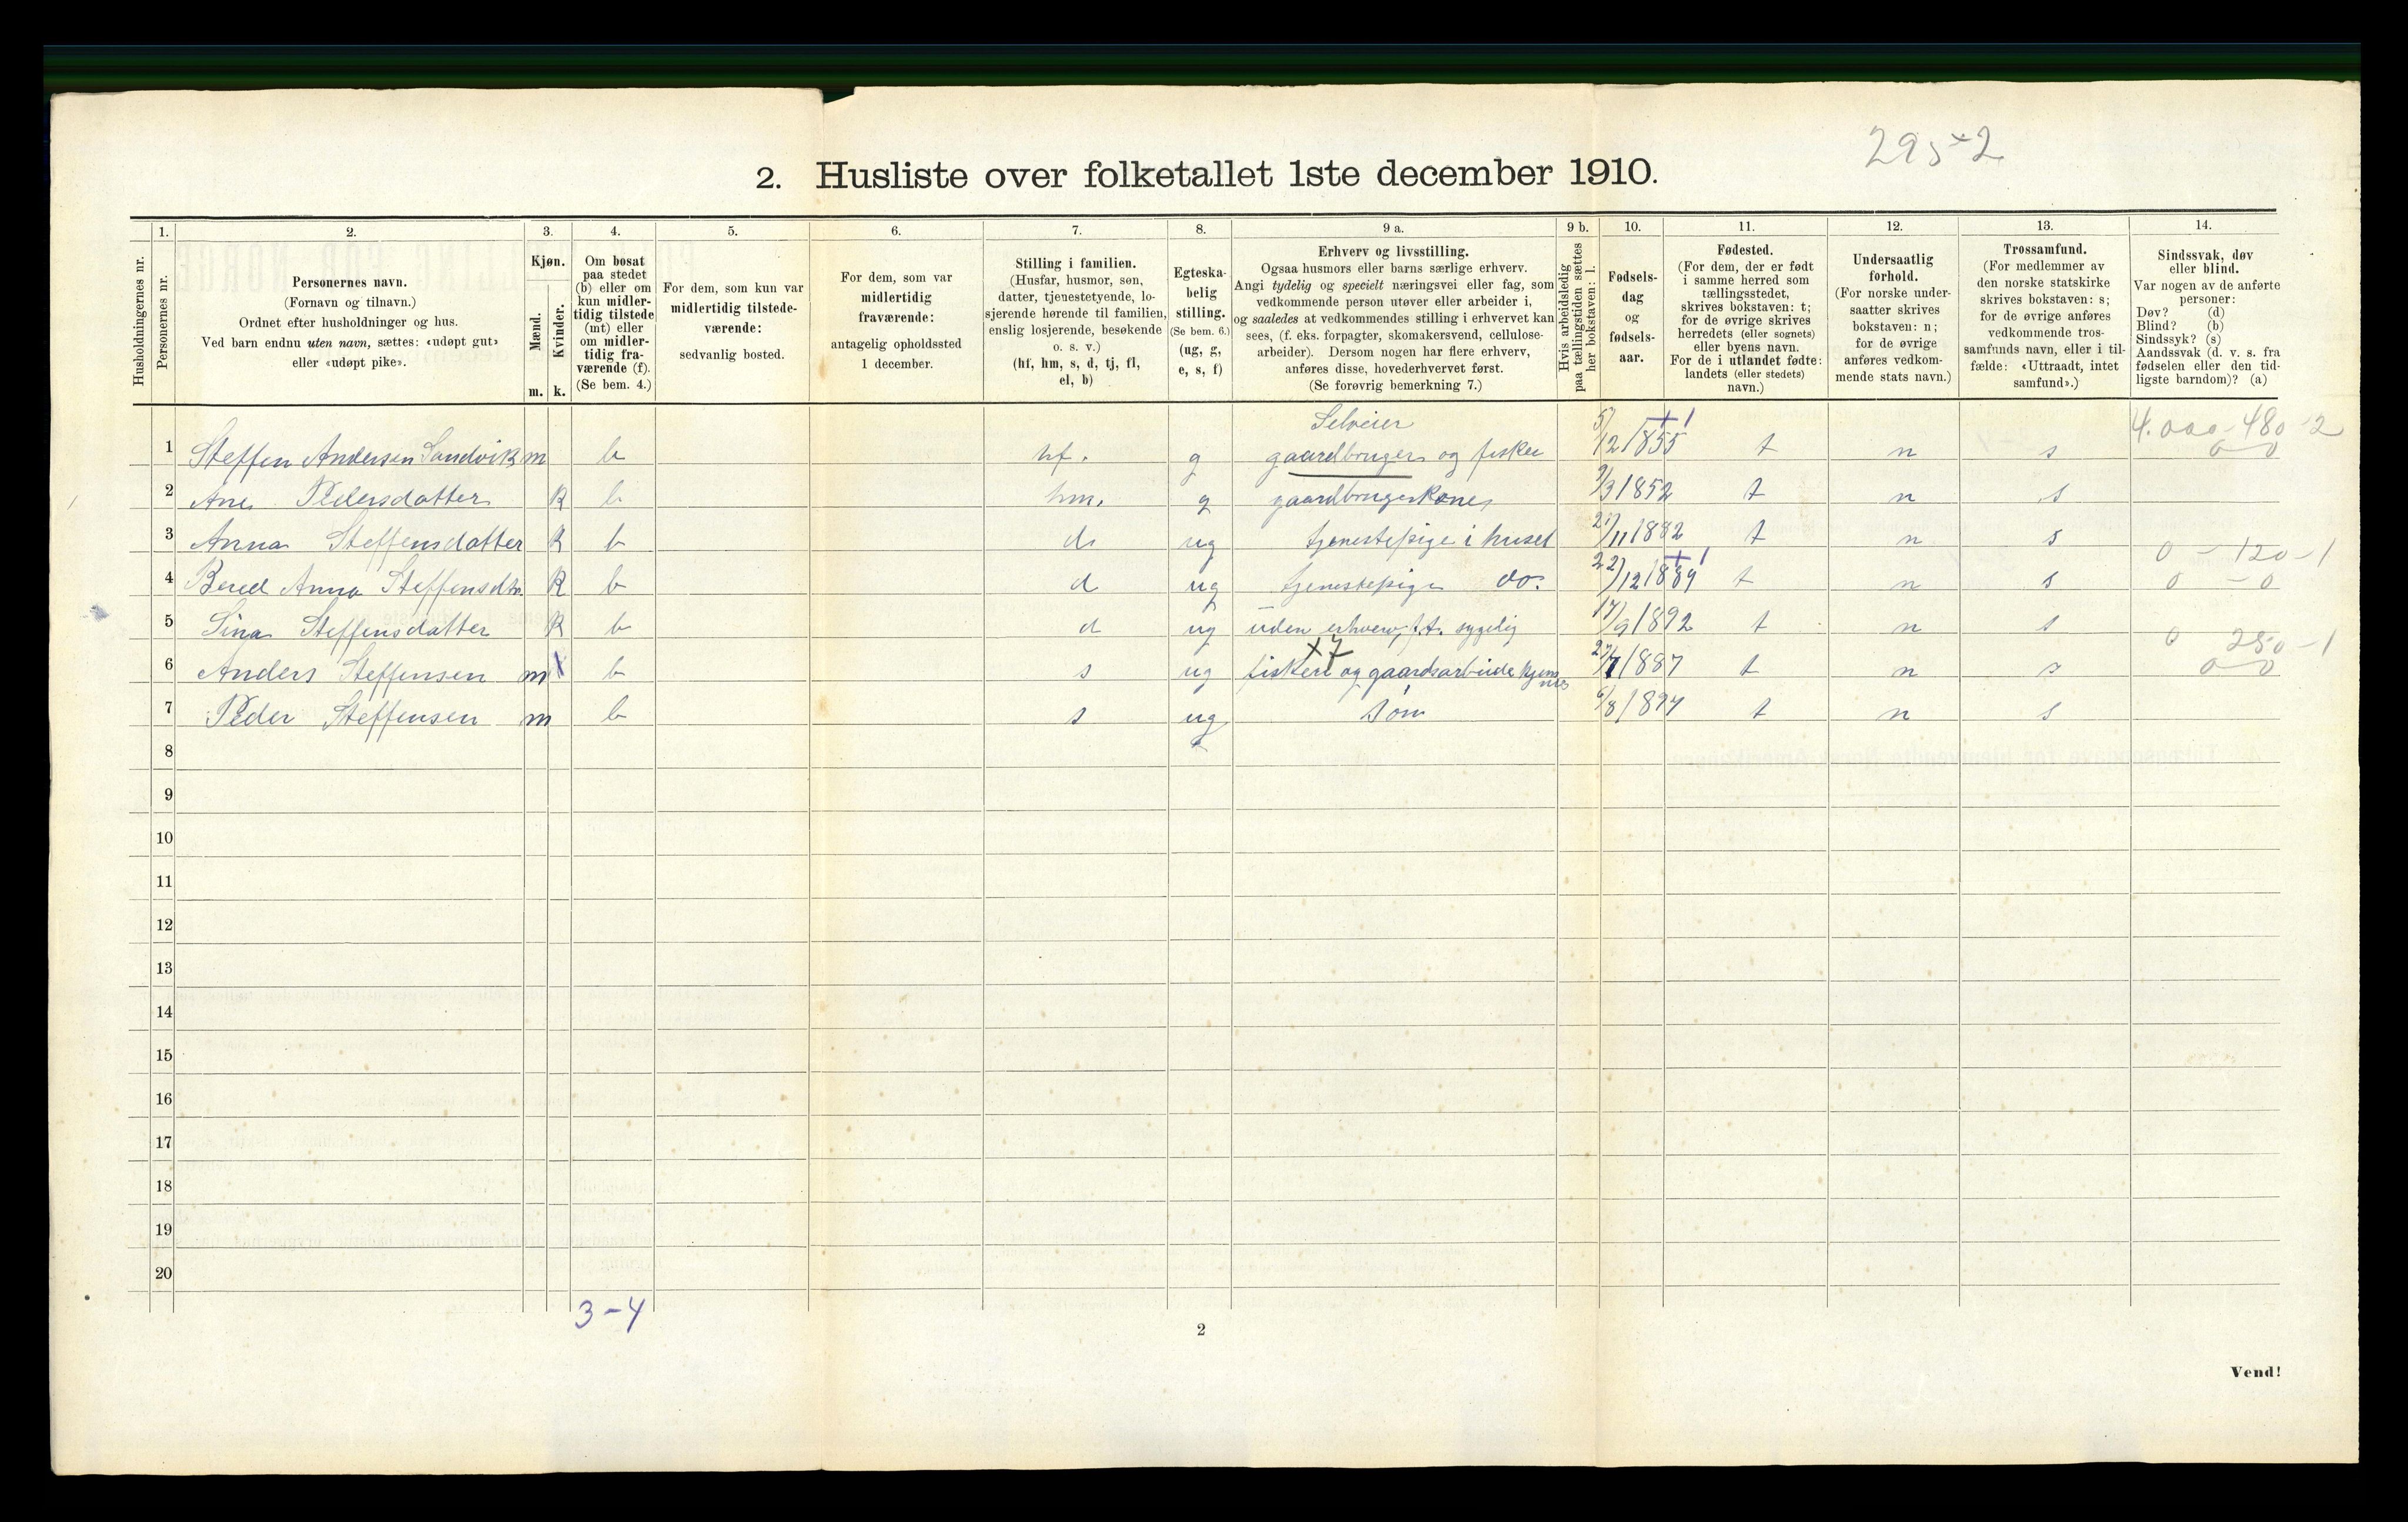 295×2
2. Husliste over folketallet 1ste december 1910.
Husholdningernes nr.
1.
Personernes nr.
2.
Personernes navn.
(Fornavn og tilnavn.)
Ordnet efter husholdninger og hus.
Ved barn endnu uten navn, sættes: «udøpt gut»
eller «udøpt pike».
3.
Kjøn.
Mænd.
Kvinder.
m. k.
4.
Om bosat
paa stedet
(b) eller om
kun midler-
tidig tilstede
(mt) eller
om midler-
tidig fra-
værende (f).
(Se bem. 4.)
5.
For dem, som kun var
midlertidig tilstede-
værende:
sedvanlig bosted.
6.
For dem, som var
midlertidig
fraværende:
antagelig opholdssted
1 december.
7.
Stilling i familien.
(Husfar, husmor, søn,
datter, tjenestetyende, lo-
sjerende hørende til familien,
enslig losjerende, besøkende
o. s. v.)
(hf, hm, s, d, tj, fl,
el, b)
8.
Egteska-
belig
stilling.
(Se bem. 6.)
(ug, g,
e, s, f)
9 a.
Erhverv og livsstilling.
Ogsaa husmors eller barns særlige erhverv.
Angi tydelig og specielt næringsvei eller fag, som
vedkommende person utøver eller arbeider i,
og saaledes at vedkommendes stilling i erhvervet kan
sees, (f. eks. forpagter, skomakersvend, cellulose-
arbeider). Dersom nogen har flere erhverv,
anføres disse, hovederhvervet først.
(Se forøvrig bemerkning 7.)
9 b.
Hvis arbeidsledig
paa tællingstiden sættes
her bokstaven: l.
10.
Fødsels-
dag
og
fødsels-
aar.
11.
Fødested.
(For dem, der er født
i samme herred som
tællingsstedet,
skrives bokstaven: t;
for de øvrige skrives
herredets (eller sognets)
eller byens navn.
For de i utlandet fødte:
landets (eller stedets)
navn.)
12.
Undersaatlig
forhold.
(For norske under-
saatter skrives
bokstaven: n;
for de øvrige
anføres vedkom-
mende stats navn.)
13.
Trossamfund.
(For medlemmer av
den norske statskirke
skrives bokstaven: s;
for de øvrige anføres
vedkommende tros-
samfunds navn, eller i til-
fælde: «Uttraadt, intet
samfund».)
14.
Sindssvak, døv
eller blind.
Var nogen av de anførte
personer:
Døv? (d)
Blind? (b)
Sindssyk? (s)
Aandssvak (d. v. s. fra
fødselen eller den tid-
ligste barndom)? (a)
Selveier + 1 4.000-480-2
1 Steffen Andersen Sandvik m b hf. g gaardbruger og fisker 5/12 1855 t n s 0-0
2 Ane Pedersdatter k b hm. g gaardbrugerkone 9/3 1852 t n s
3 Anna Steffensdatter k b d ug tjenestepige i huset 21/11 1882 t n s
+ 1 0-120-1
4 Anna Steffensdtr. k b d ug tjenestepige do. 22/12 1889 t n s 0-0
5 Sina Steffensdatter k b d ug uden erhverv, f.t. sygelig 17/9 1892 t n s
×7 0 280-1
6 Anders Steffensen m b s ug fiskeri og gaardsarbeide 1887 t n s 0-0
7 Peder Steffensen m b s ug søn 6/8 1894 t n s
8
9
10
11
12
13
14
15
16
17
18
19
20
3-4
2
Vend!